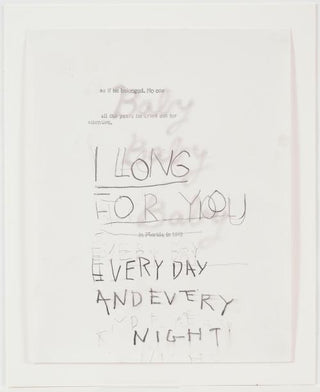 as if he belonged. No one
Baby
all the years he cried out for
Baby
I LONG
FOR YOU
Baby
in Florida in 1962
EVERY DAY
AND EVERY
NIGHT